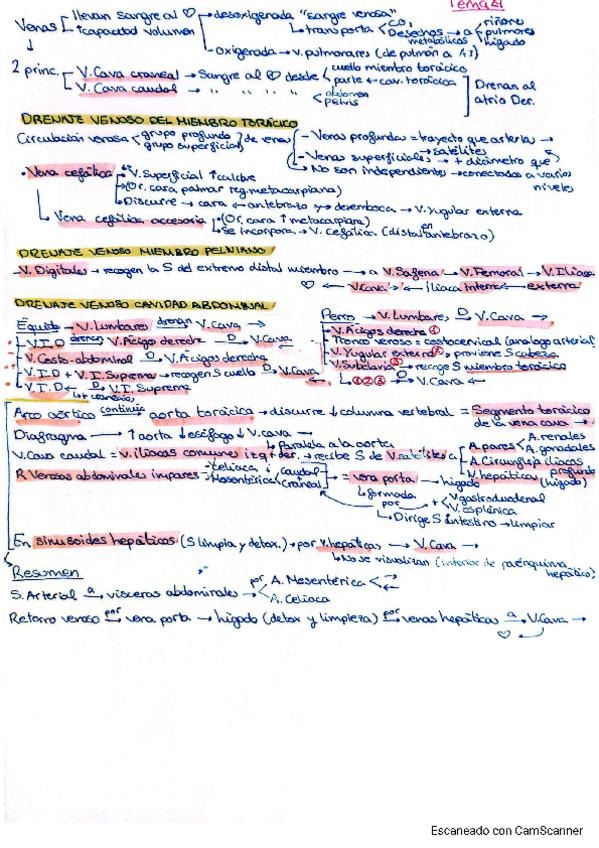 Tema 21
Venas llevan sangre al ♡ → desoxigenada "sangre venosa"
↑capacidad volumen
transporta CO₂
Desechos metabólicos → a riñones
pulmones
hígado
Oxigenada → v. pulmonares (de pulmón a AI)
2 princ. V. Cava craneal → Sangre al ♡ desde cuello miembro torácico
parte ← cav. torácica
V. Cava caudal → " " " "
abdomen
pelvis
Drenan al atrio Der.
DRENAJE VENOSO DEL MIEMBRO TORÁCICO
Circulación venosa grupo profundo de venas
grupo superficial
- Venas profundas = trayecto que arterias →
→ satélites
- Venas superficiales → + diámetro que
No son independientes → conectadas a varios niveles
• Vena cefálica V. Superficial ↑calibre
(Or. cara palmar reg. metacarpiana)
Discurre → cara ← antebrazo y desemboca → V. Yugular externa
Vena cefálica accesoria (Or. cara ↑ metacarpiana)
Se incorpora → V. cefálica (distal en antebrazo)
DRENAJE VENOSO MIEMBRO PELVIANO
V. Digitales → recogen la S del extremo distal miembro → a V. Safena → V. Femoral → V. Iliaca
♡ ← V. Cava ← iliaca interna ← externa
DRENAJE VENOSO CAVIDAD ABDOMINAL
Équido → V. Lumbares drenan V. Cava →
V.I.D drenan V. Ácigos derecha D V. Cava
V. Costo-abdominal D V. Ácigos derecha
V.I.D + V.I. Suprema → recogen S cuello D V. Cava
V.I.D ← D V.I. Suprema
↳ + craneal
Perro → V. Lumbares D V. Cava →
V. Ácigos derecha ①
Tronco venoso = costocervical (análogo arterial)
V. Yugular externa ②, proviene S cabeza
V. Subclavia ③ → recoge S miembro torácico
①②③ D V. Cava ←
Arco aórtico continúa aorta torácica → discurre ↓ columna vertebral = Segmento torácico de la vena cava →
Diafragma → ↑ aorta ↓ esófago ↓ V. cava →
Paralela a la aorta
V. Cava caudal = V. iliacas comunes izq + der. → recibe S de V. satélites a A. pares A. renales
A. gonadales
A. Circunfleja iliacas profunda
V. hepáticas (hígado)
R. Venosas abdominales impares Celiaca
Mesentérica caudal
craneal = vena porta → hígado
formada por + V. gastroduodenal
V. esplénica
Dirige S intestino → limpiar
En sinusoides hepáticos (S limpia y detox.) → por v. hepáticas → V. Cava →
No se visualizan (interior de parénquima hepático)
Resumen
S. Arterial a vísceras abdominales por A. Mesentérica
A. Celiaca
Retorno venoso por vena porta → hígado (detox y limpieza) por venas hepáticas a V. Cava →
♡
Escaneado con CamScanner